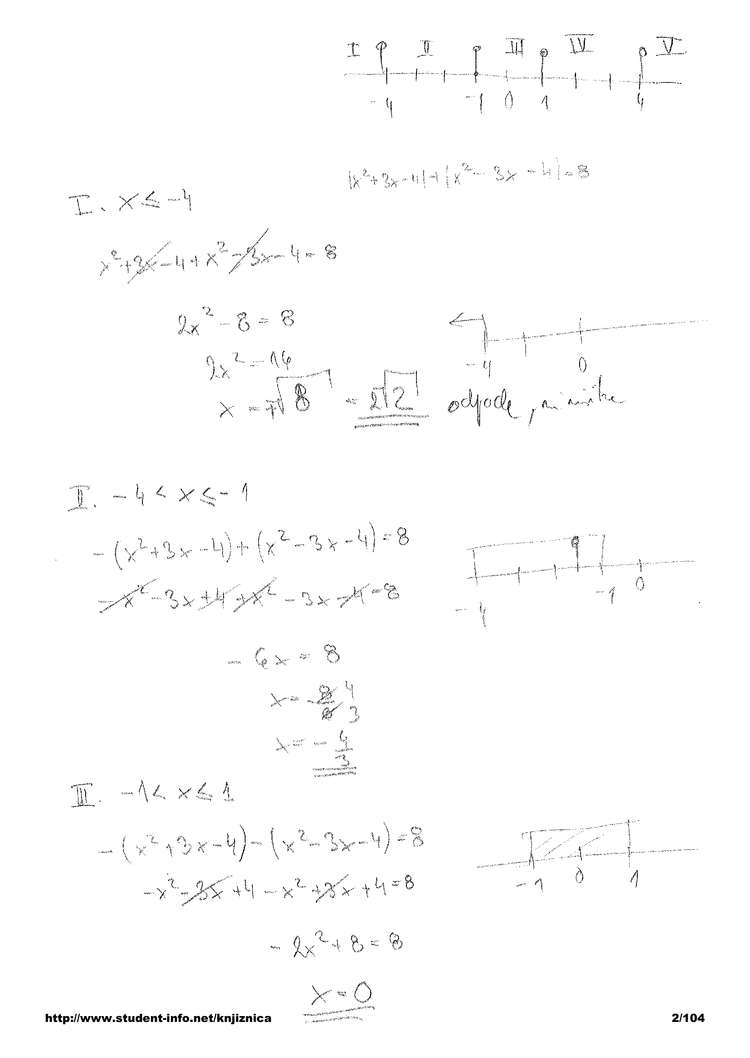 I II III IV V
-4 -1 0 1 4
|x²+3x-4|+|x²-3x-4|=8
I. x ≤ -4
x²+3x-4+x²-3x-4=8
2x²-8=8
2x²=16
-4 0
x = ∓√8 = 2√2 odpade,
II. -4 < x ≤ -1
-(x²+3x-4)+(x²-3x-4)=8
-x²-3x+4+x²-3x-4=8
-4 -1 0
-6x = 8
x = -8/6 4/3
x = -4/3
III. -1 < x ≤ 1
-(x²+3x-4)-(x²-3x-4)=8
-x²-3x+4-x²+3x+4=8
-1 0 1
-2x²+8=8
x=0
http://www.student-info.net/knjiznica 2/104